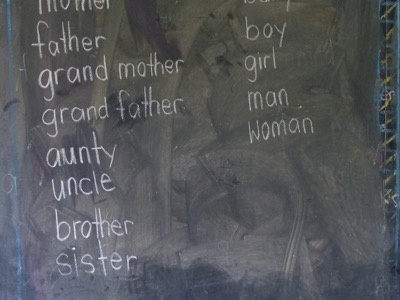 mother
father
grand mother
grand father
aunty
uncle
brother
sister
boy
girl
man
woman